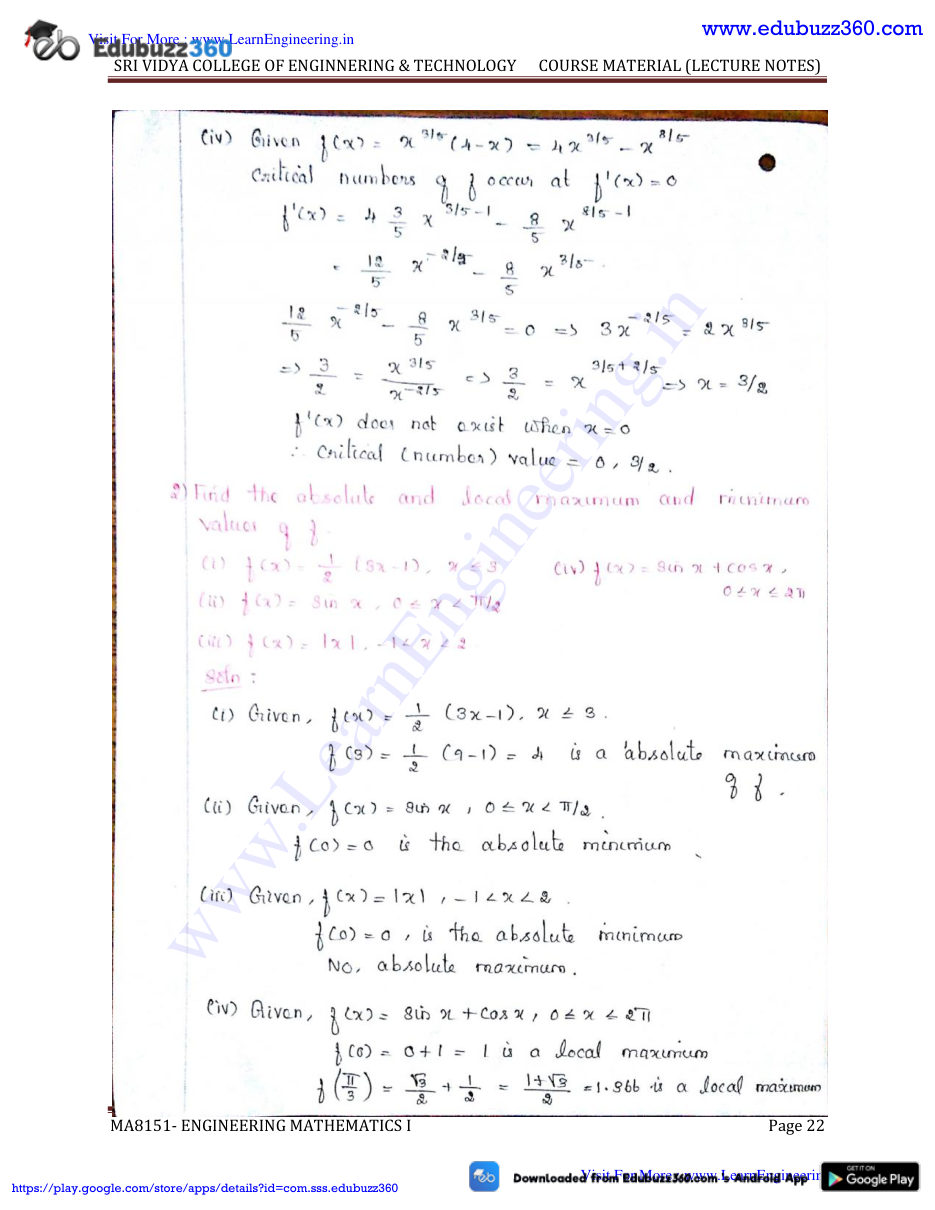 www.edubuzz360.com
Visit For More : www.LearnEngineering.in
Edubuzz360
SRI VIDYA COLLEGE OF ENGINNERING & TECHNOLOGY COURSE MATERIAL (LECTURE NOTES)
(iv) Given f(x) = x^3/5 (4-x) = 4x^3/5 - x^8/5
Critical numbers of f occur at f'(x) = 0
f'(x) = 4 3/5 x^3/5-1 - 8/5 x^8/5-1
= 12/5 x^-2/5 - 8/5 x^3/5.
12/5 x^-2/5 - 8/5 x^3/5 = 0 => 3x^-2/5 = 2x^3/5
=> 3/2 = x^3/5 / x^-2/5 => 3/2 = x^3/5+2/5 => x = 3/2
f'(x) does not exist when x = 0
∴ Critical (number) value = 0, 3/2.
2) Find the absolute and local maximum and minimum
values of f.
(i) f(x) = 1/2 (3x-1), x ≤ 3 (iv) f(x) = sin x + cos x,
0 ≤ x ≤ 2π
(ii) f(x) = sin x, 0 ≤ x < π/2
(iii) f(x) = |x|, -1 < x < 2
Soln :
(i) Given, f(x) = 1/2 (3x-1), x ≤ 3.
f(3) = 1/2 (9-1) = 4 is a absolute maximum
of f.
(ii) Given, f(x) = sin x, 0 ≤ x < π/2.
f(0) = 0 is the absolute minimum
(iii) Given, f(x) = |x|, -1 < x < 2.
f(0) = 0, is the absolute minimum
No, absolute maximum.
(iv) Given, f(x) = sin x + cos x, 0 ≤ x < 2π
f(0) = 0+1 = 1 is a local maximum
f(π/3) = √3/2 + 1/2 = 1+√3/2 = 1.366 is a local maximum
www.LearnEngineering.in
MA8151- ENGINEERING MATHEMATICS I Page 22
https://play.google.com/store/apps/details?id=com.sss.edubuzz360
Downloaded from EduBuzz360.com 's Android App
Visit For More : www.LearnEngineering.in
GET IT ON
Google Play